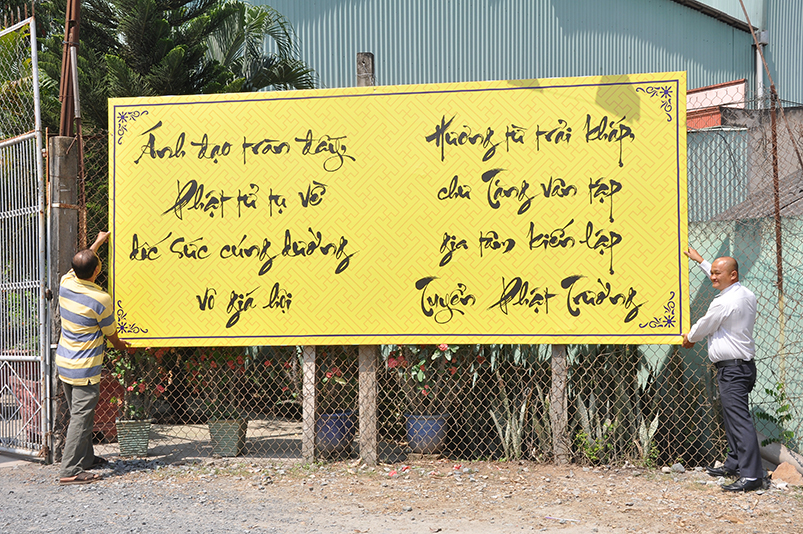 Ánh đạo tràn đầy,
Phật tử tụ về
dốc sức cúng dường
vô giá hội
Hương từ trải khắp,
chư Tăng vân tập
gia tâm kiến lập
Tuyển Phật Trường